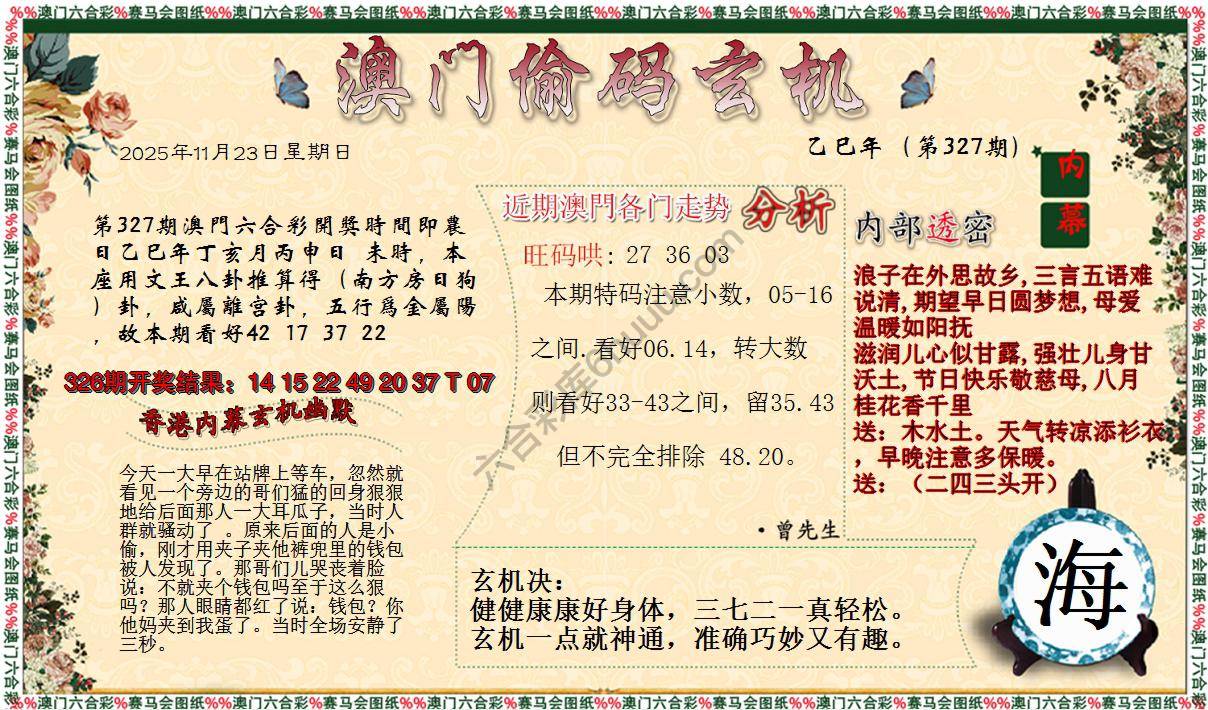 %%澳门六合彩%赛马会图纸%%澳门六合彩%赛马会图纸%%澳门六合彩%赛马会图纸%%澳门六合彩%赛马会图纸%%澳门六合彩%赛马会图纸%%澳门六合彩%赛马会图纸%%
澳门偷码玄机
2025年11月23日星期日
乙巳年（第327期）
内幕
第327期澳門六合彩開獎時間即農
日乙巳年丁亥月丙申日 未時，本
座用文王八卦推算得（南方房日狗
）卦，咸屬離宫卦，五行爲金屬陽
，故本期看好42 17 37 22
326期开奖结果：14 15 22 49 20 37 T 07
香港内幕玄机幽默
今天一大早在站牌上等车，忽然就
看见一个旁边的哥们猛的回身狠狠
地给后面那人一大耳瓜子，当时人
群就骚动了 。原来后面的人是小
偷，刚才用夹子夹他裤兜里的钱包
被人发现了。那哥们儿哭丧着脸
说：不就夹个钱包吗至于这么狠
吗？那人眼睛都红了说：钱包？你
他妈夹到我蛋了。当时全场安静了
三秒。
近期澳門各门走势 分析
旺码哄: 27 36 03
本期特码注意小数，05-16
之间.看好06.14，转大数
则看好33-43之间，留35.43
但不完全排除 48.20。
·曾先生
内部透密
浪子在外思故乡,三言五语难
说清,期望早日圆梦想,母爱
温暖如阳抚
滋润儿心似甘露,强壮儿身甘
沃土,节日快乐敬慈母,八月
桂花香千里
送：木水土。天气转凉添衫衣
，早晚注意多保暖。
送：（二四三头开）
玄机决：
健健康康好身体，三七二一真轻松。
玄机一点就神通，准确巧妙又有趣。
海
%%澳门六合彩%赛马会图纸%%澳门六合彩%赛马会图纸%%澳门六合彩%赛马会图纸%%澳门六合彩%赛马会图纸%%澳门六合彩%赛马会图纸%%澳门六合彩%赛马会图纸%%